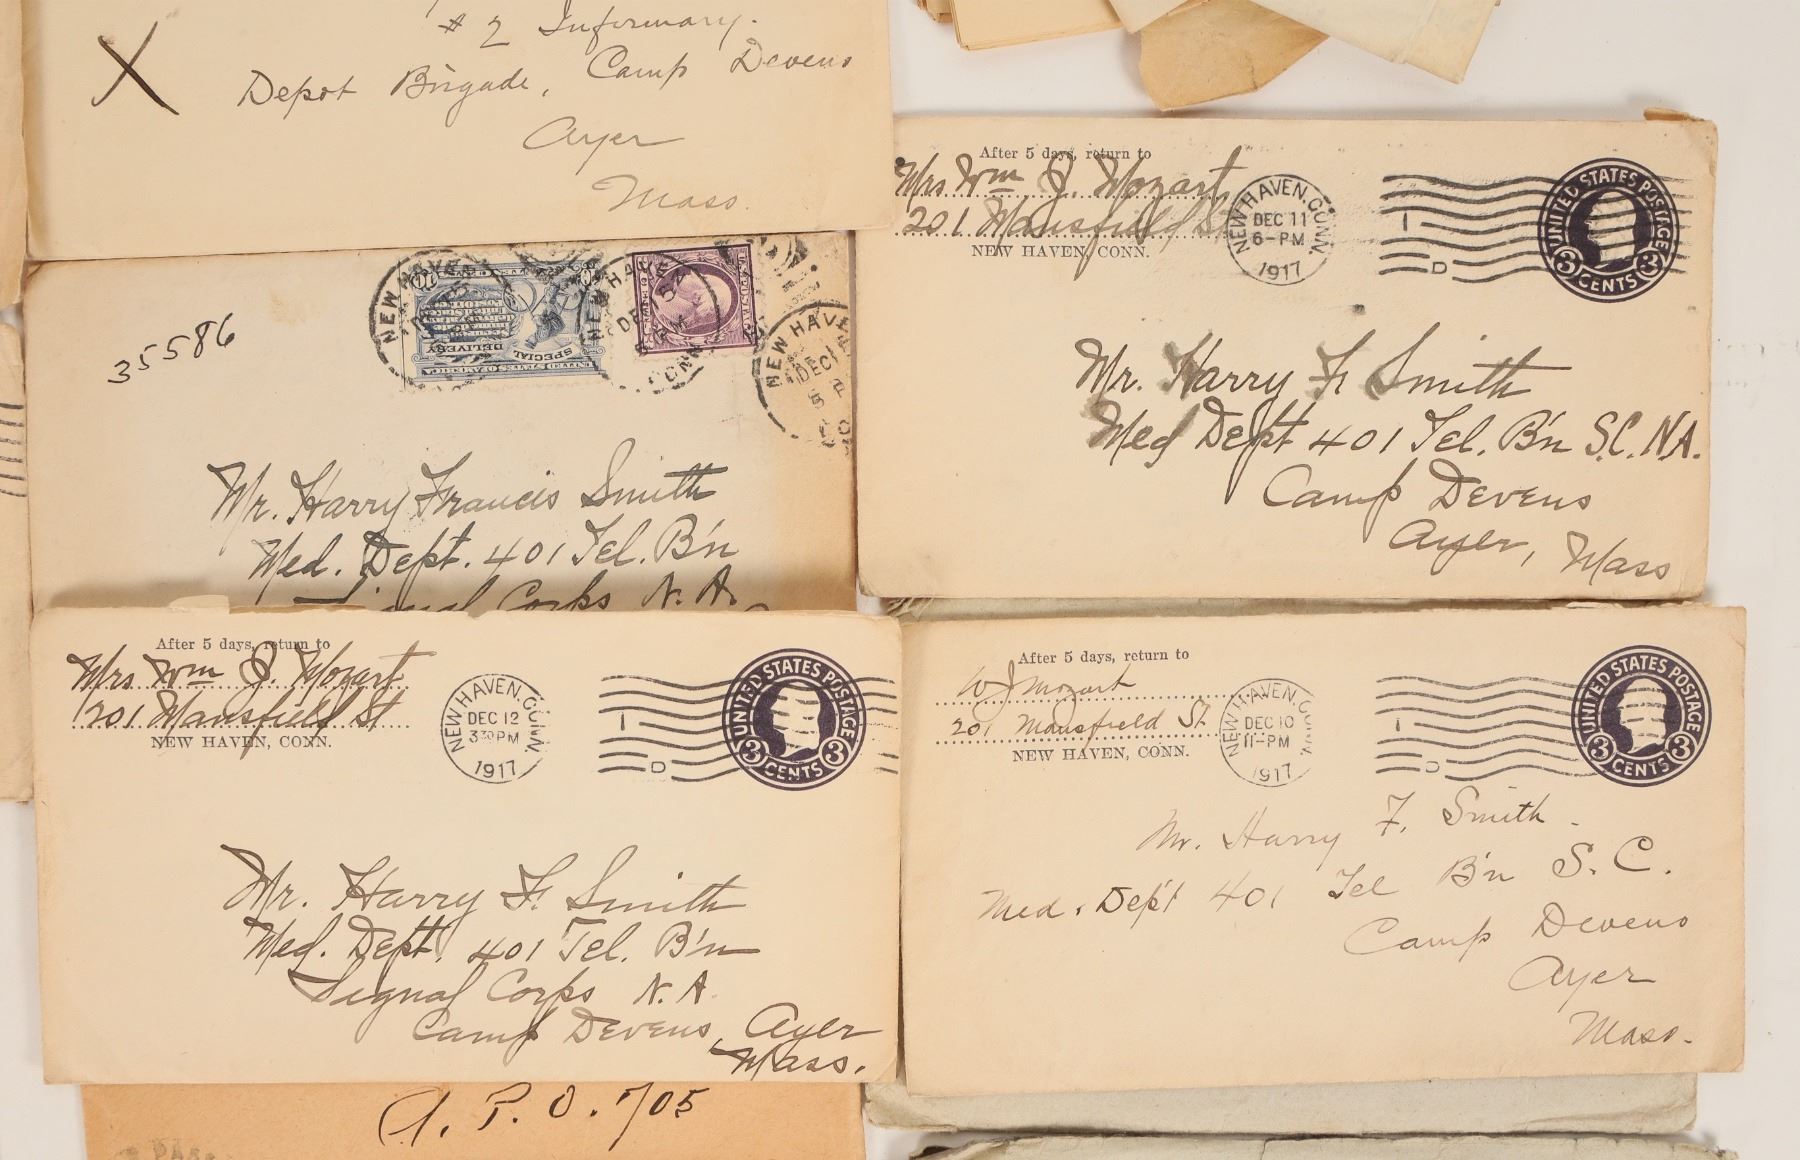 # 2 Infirmary.
Depot Brigade, Camp Devens
Ayer
Mass.
X
35586
SPECIAL
DELIVERY
UNITED STATES OF AMERICA
NEW HAVE
NEW HAVE
DEC
5 P
Mr. Harry Francis Smith
Med. Dept. 401 Tel. B'n
Signal Corps N. A.
After 5 days, return to
Mrs Wm J. Mozart
201 Mansfield St
NEW HAVEN, CONN.
NEW HAVEN, CONN.
DEC 11
6-PM
1917
UNITED STATES POSTAGE
3 CENTS 3
Mr. Harry F. Smith
Med Dept 401 Tel. B'n S.C. N.A.
Camp Devens
Ayer, Mass
After 5 days, return to
Mrs Wm J. Mozart
201 Mansfield St
NEW HAVEN, CONN.
NEW HAVEN, CONN.
DEC 12
330PM
1917
UNITED STATES POSTAGE
3 CENTS 3
Mr. Harry F. Smith
Med. Dept. 401 Tel. B'n
Signal Corps N. A.
Camp Devens, Ayer
Mass.
After 5 days, return to
W J Mozart
201 Mansfield St.
NEW HAVEN, CONN.
NEW HAVEN, CONN.
DEC 10
11-PM
1917
UNITED STATES POSTAGE
3 CENTS 3
Mr. Harry F. Smith.
Med. Dep't 401 Tel B'n S. C.
Camp Devens
Ayer
Mass.
A. P. O. 705